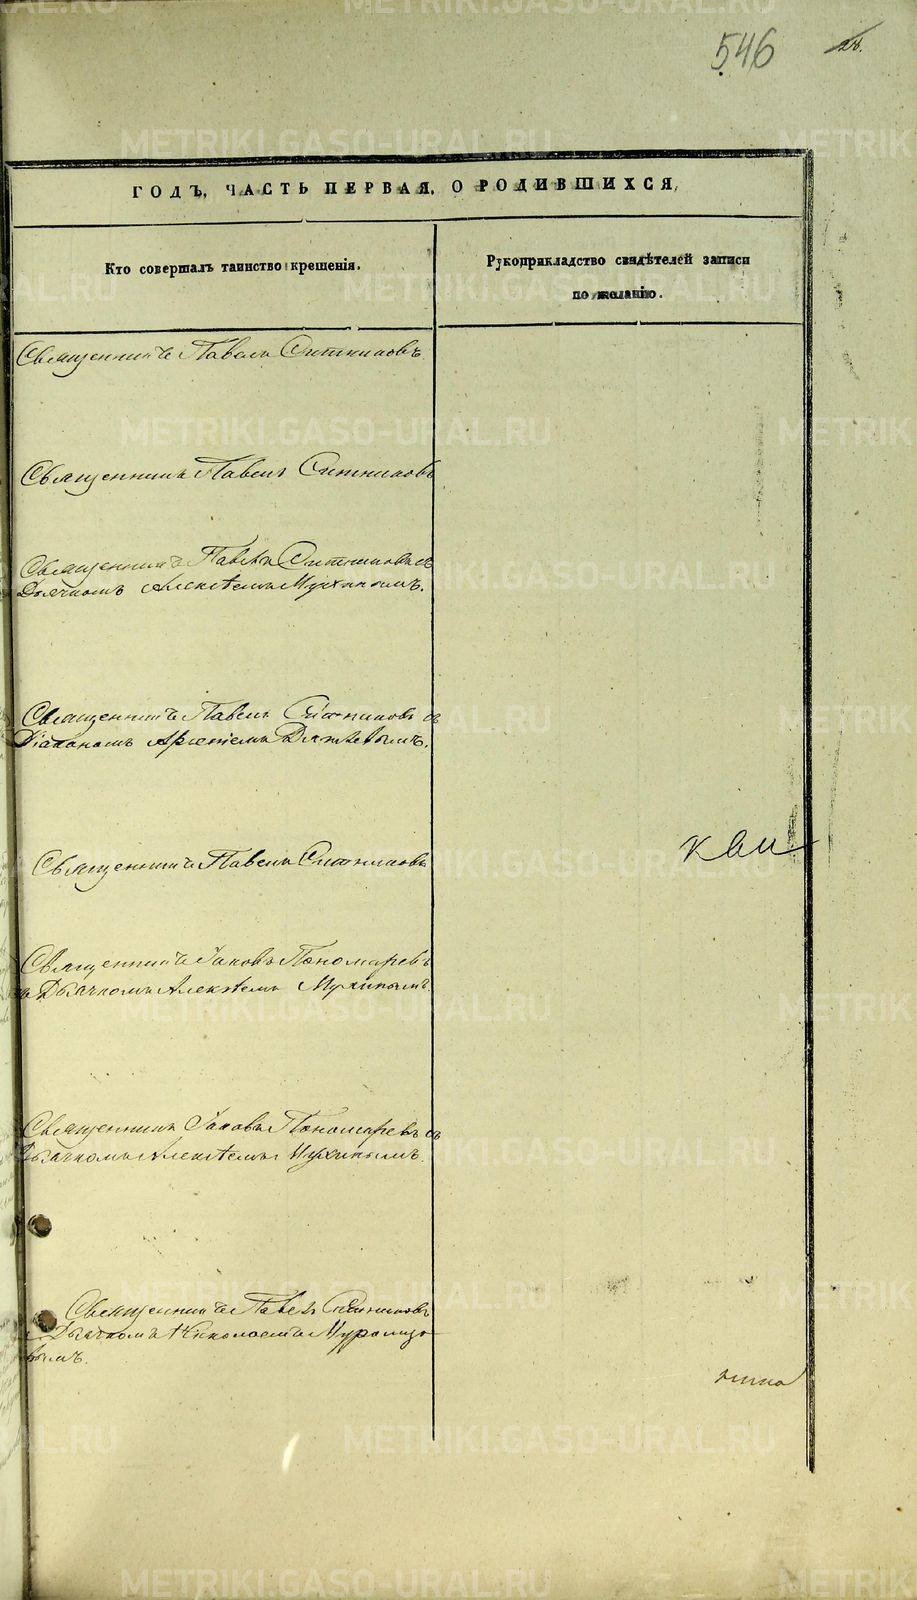 546
28.
ГОДЪ, ЧАСТЬ ПЕРВАЯ, О РОДИВШИХСЯ,
Кто совершалъ таинство крещенія.
Рукоприкладство свидѣтелей записи
по желанію.
Священникъ Павелъ Ситниковъ
Священникъ Павелъ Ситниковъ
Священникъ Павелъ Ситниковъ съ
Дьячкомъ Алексѣемъ Мухинымъ.
Священникъ Павелъ Ситниковъ съ
Діакономъ Арсеніемъ
Священникъ Павелъ Ситниковъ
Священникъ Іаковъ Пономаревъ
съ Дьячкомъ Алексѣемъ Мухинымъ.
Священникъ Іаковъ Пономаревъ съ
Дьячкомъ Алексѣемъ Мухинымъ.
Священникъ Павелъ Ситниковъ
съ Дьячкомъ Николаемъ
вымъ.
METRIKI.GASO-URAL.RU